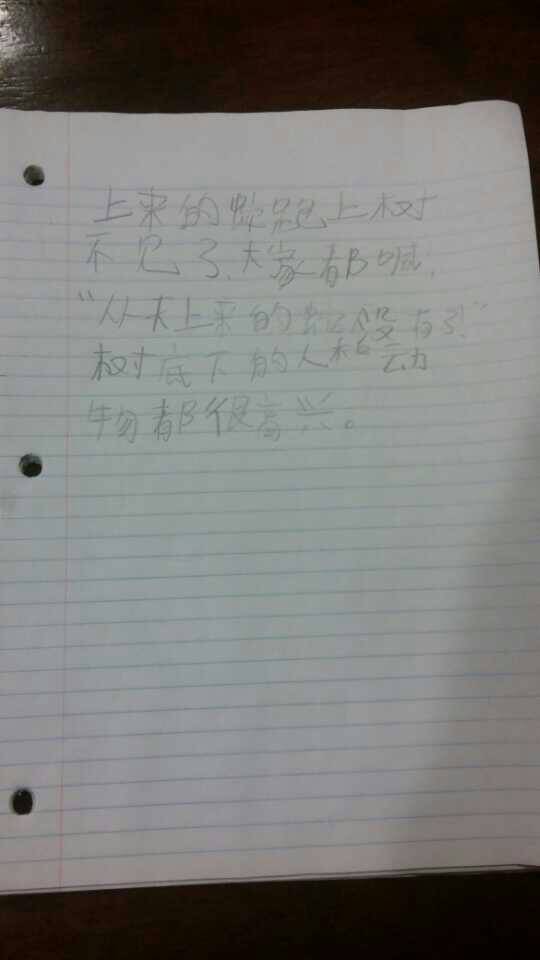 上来的蛇跑上树
不见了.大家都喊,
"从天上来的蛇没有了!"
树底下的人和动
物都很高兴。